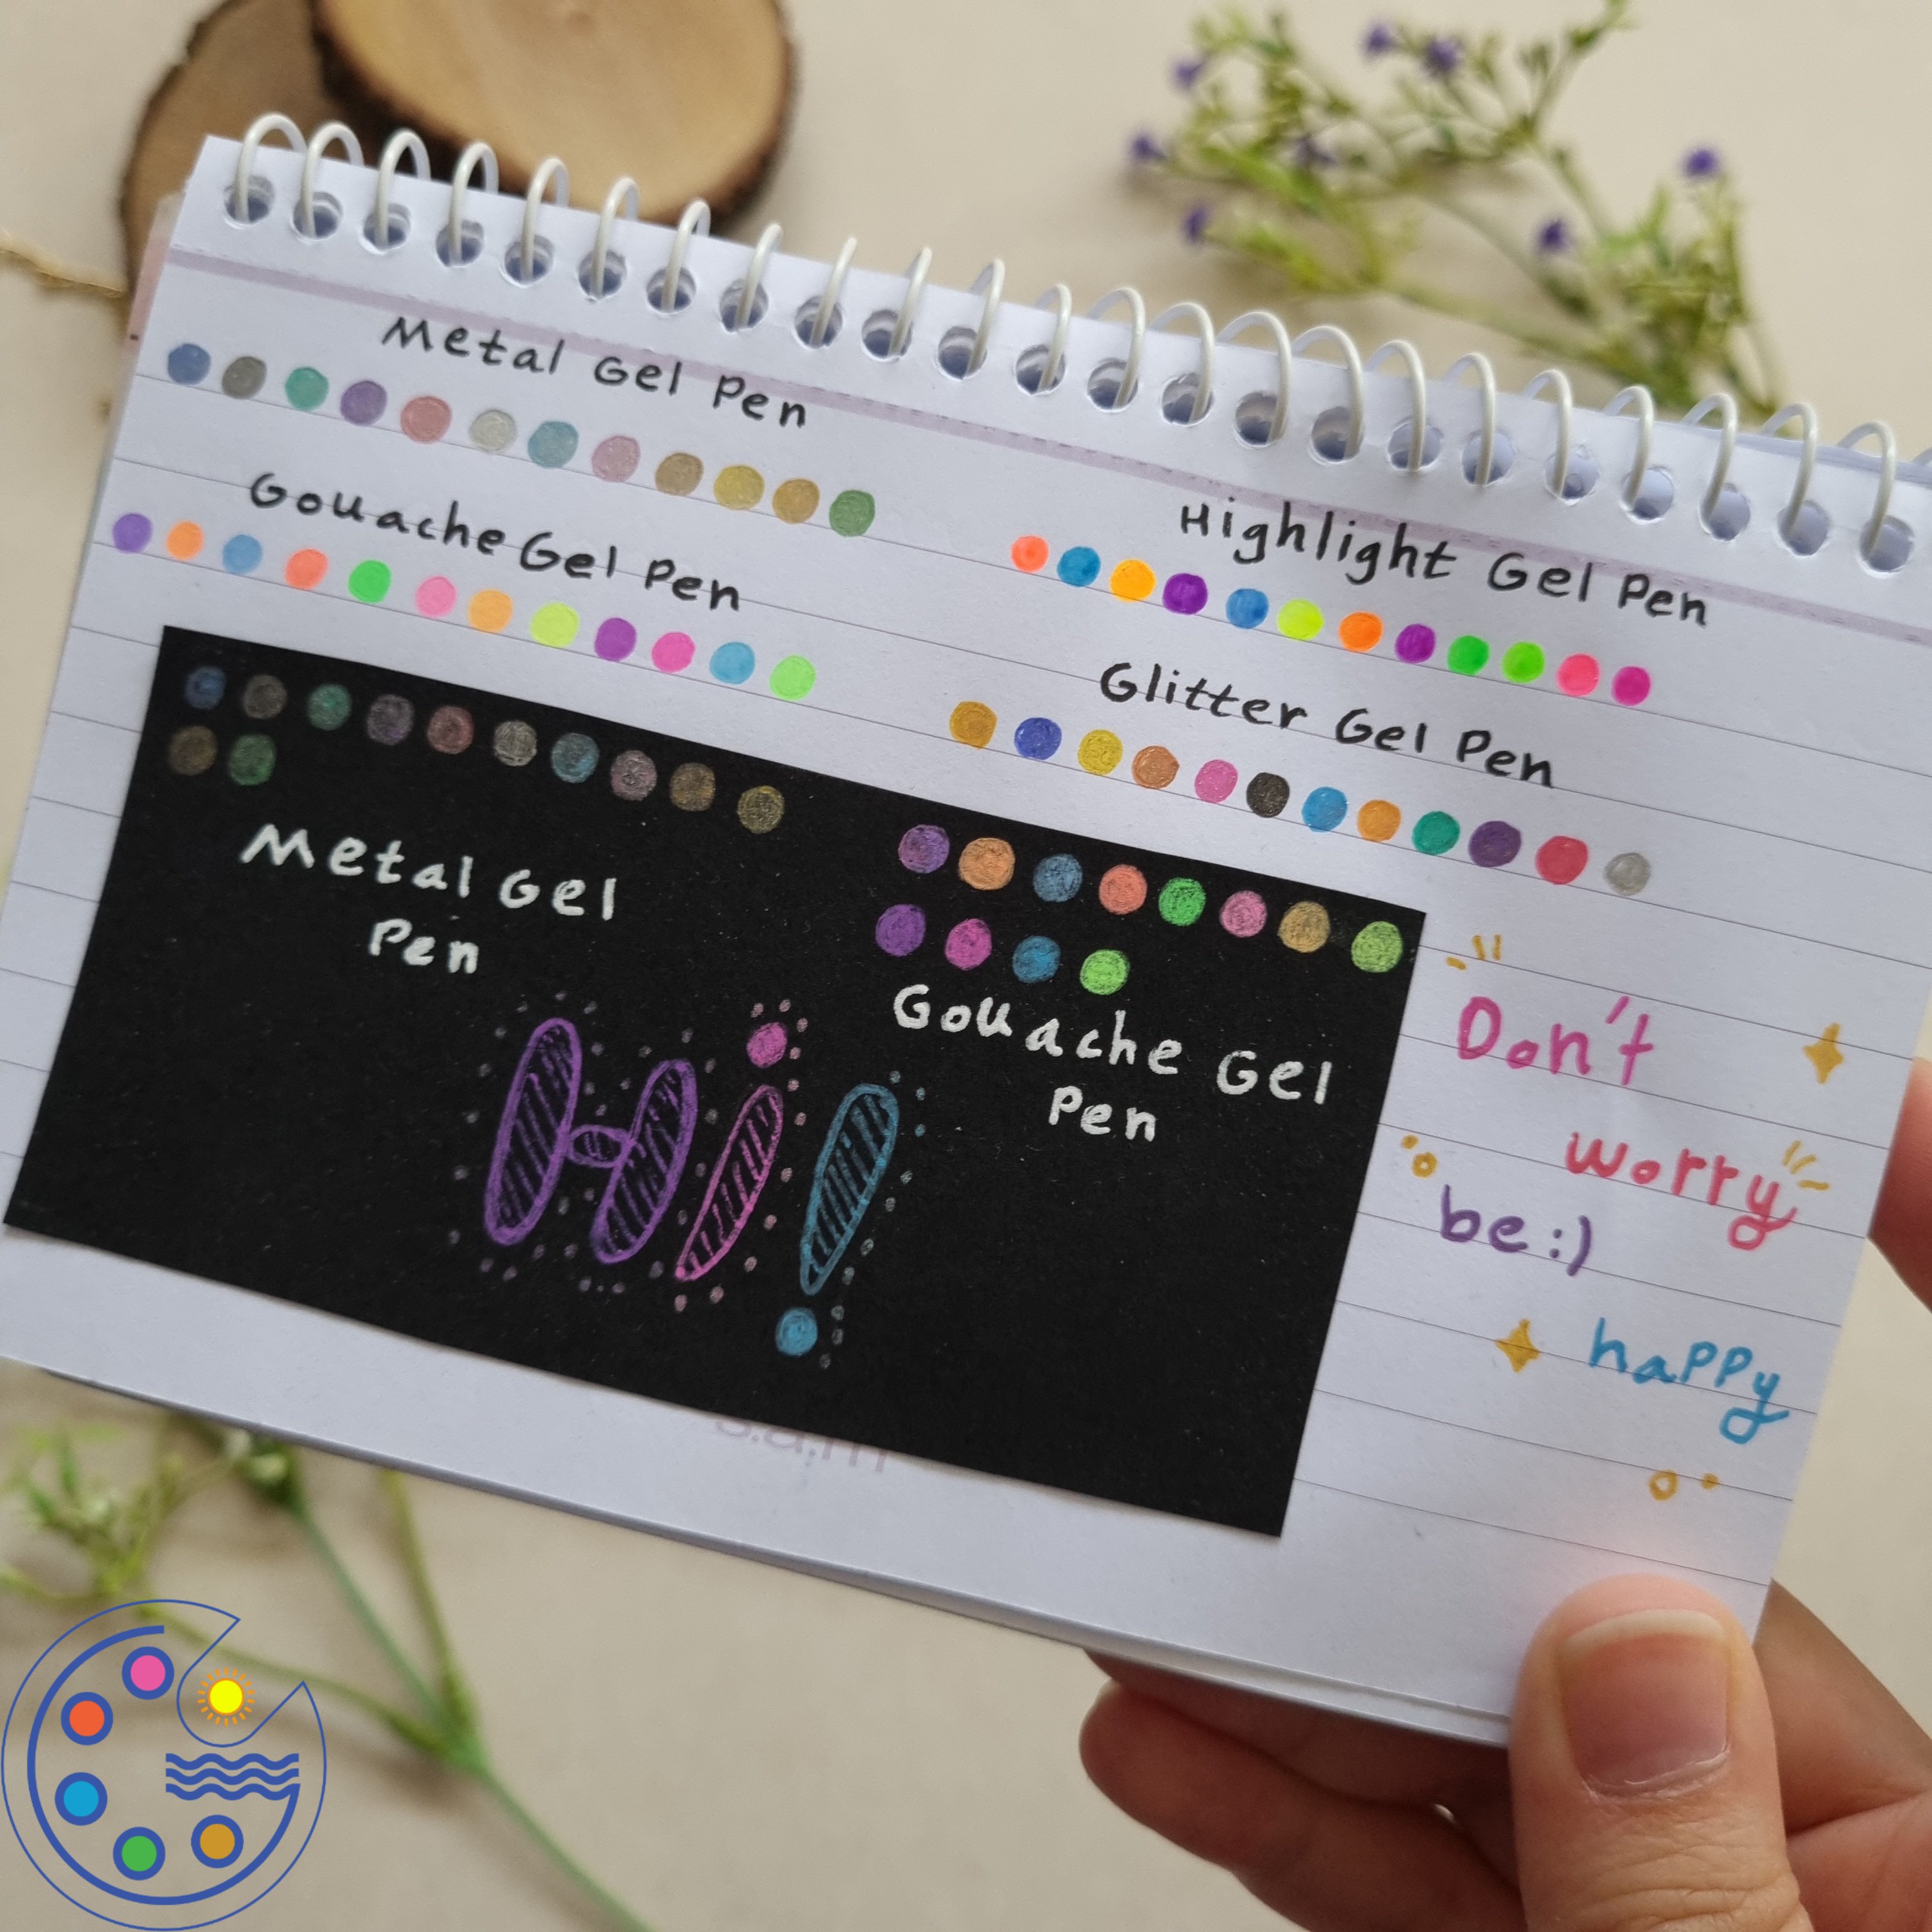 Metal Gel Pen
Gouache Gel Pen
Highlight Gel Pen
Glitter Gel Pen
Metal Gel
Pen
Gouache Gel
Pen
Hi!
Don't
worry
be :)
happy
s.a.m